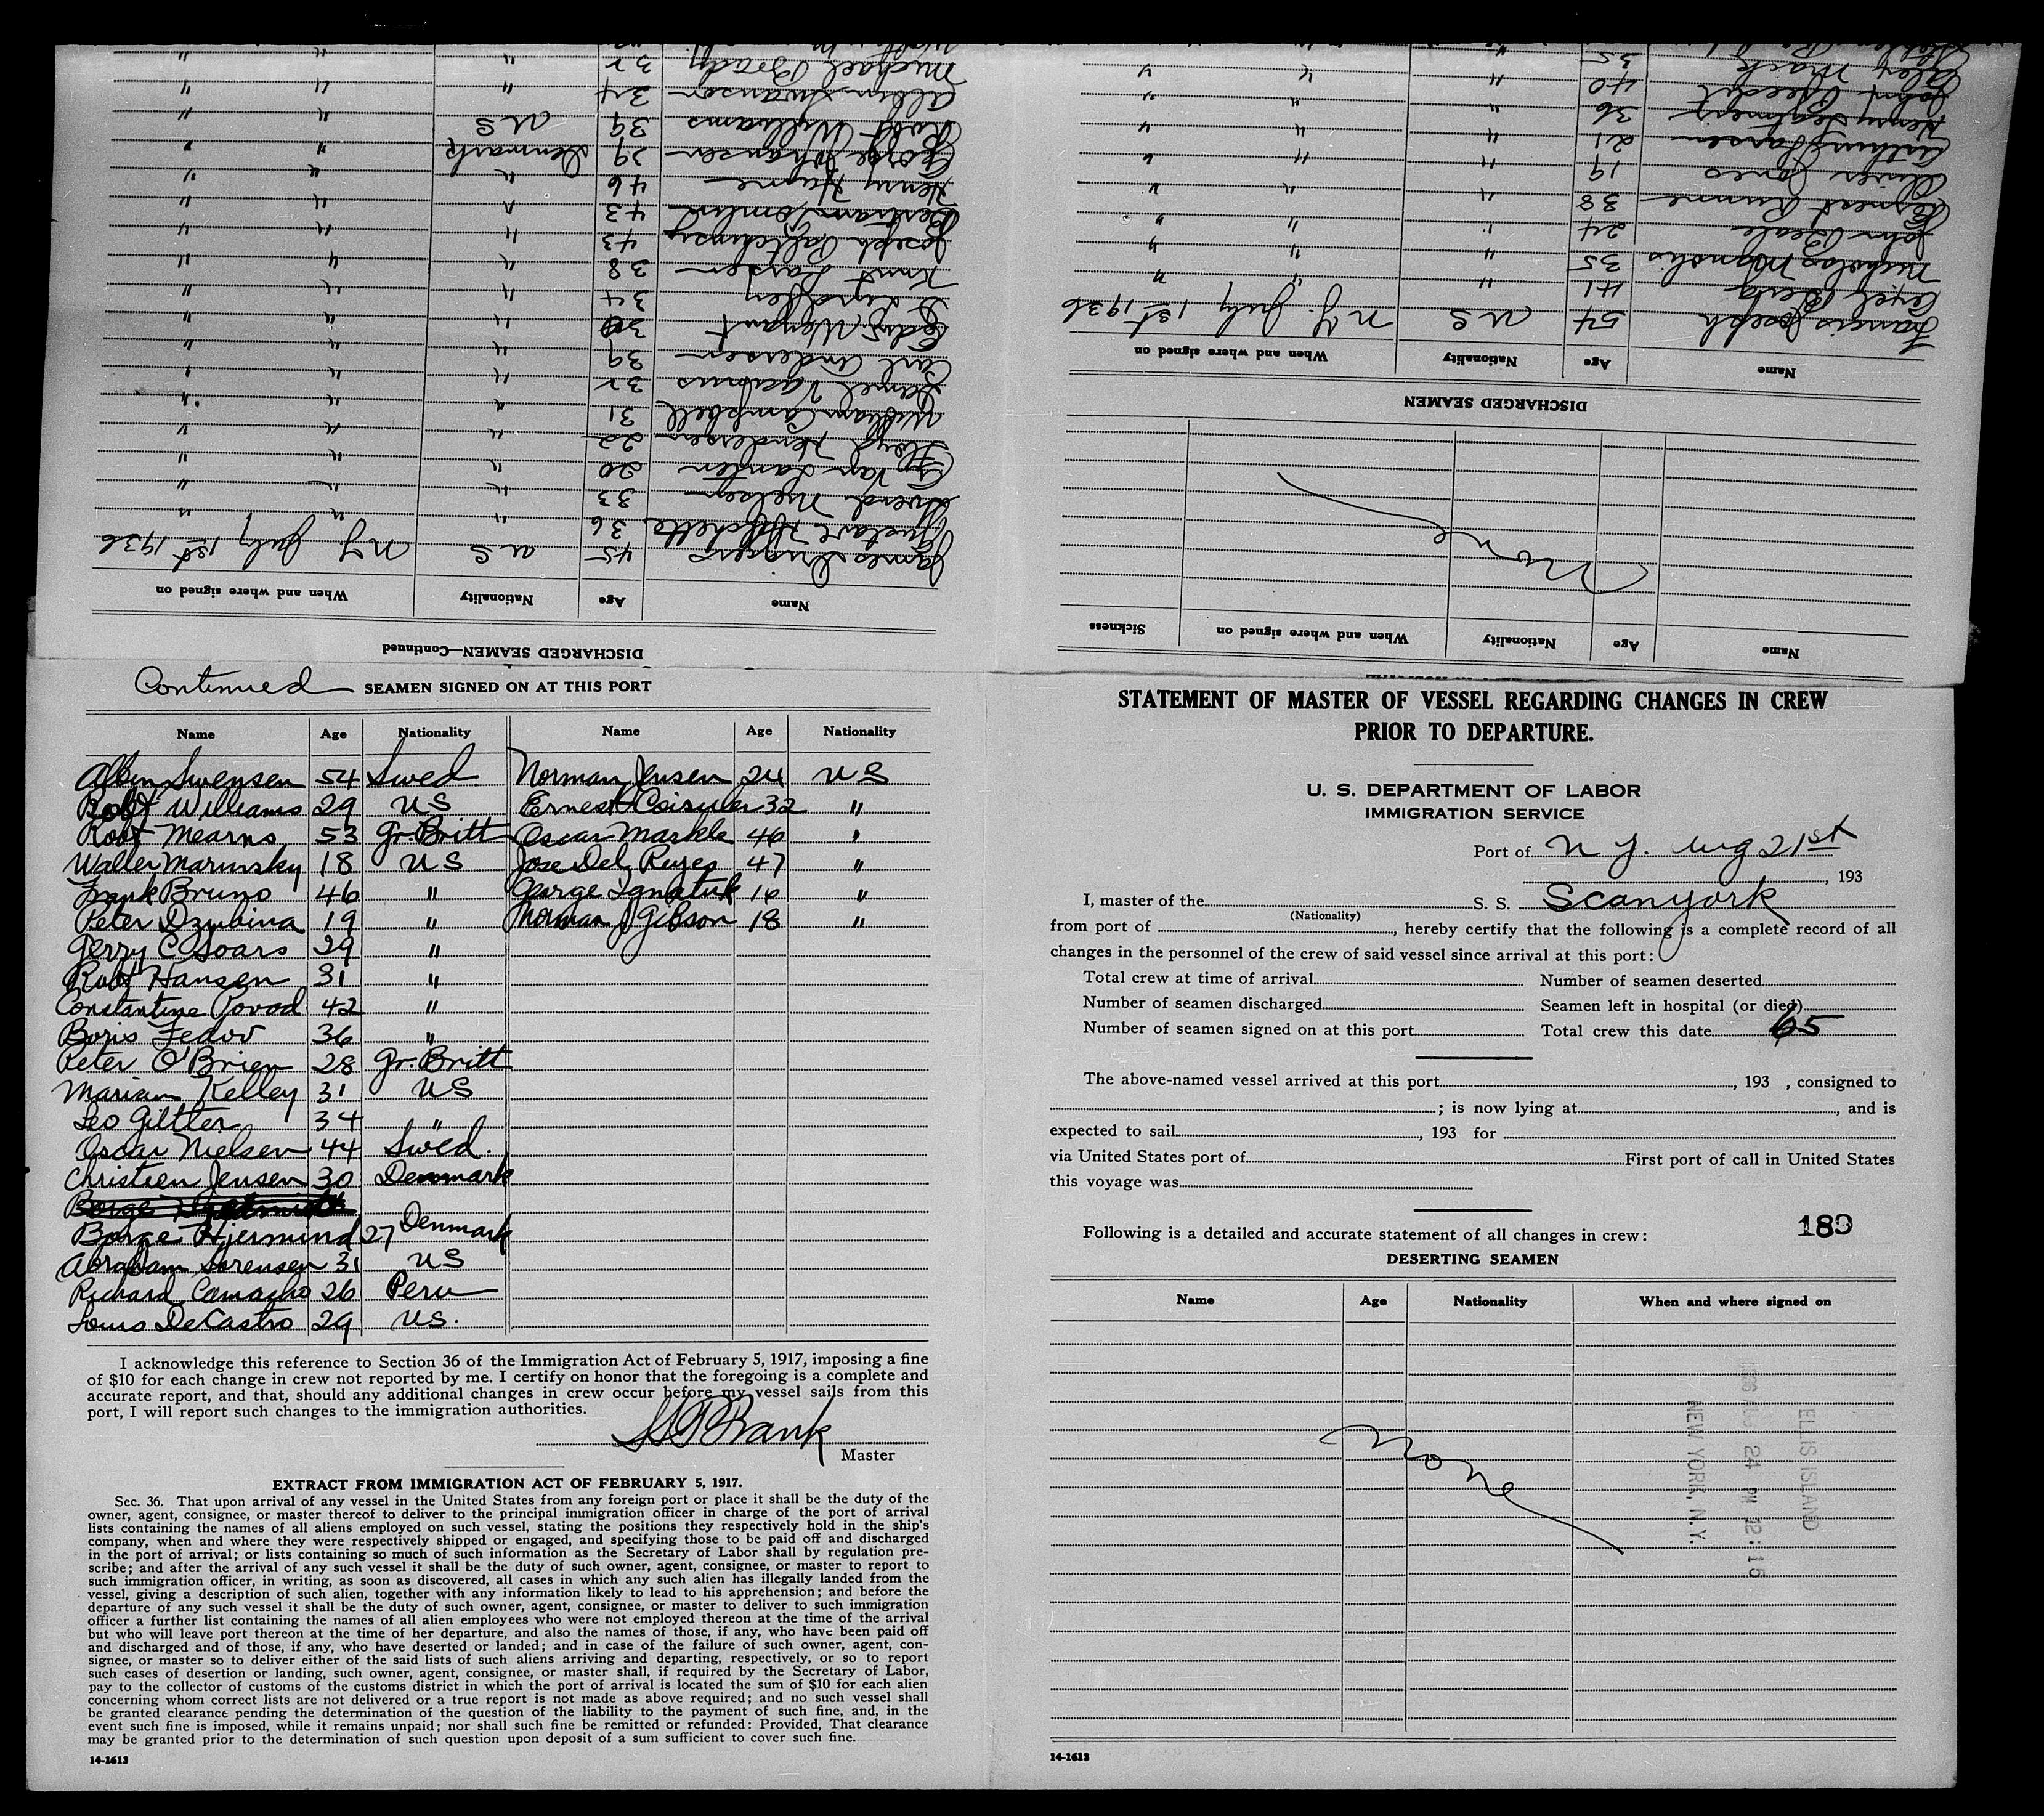 Continued SEAMEN SIGNED ON AT THIS PORT
Name Age Nationality Name Age Nationality
Albin Swensen 54 Swed. Norman Jensen 24 US
Robt Williams 29 US Ernest 32 "
Robt Mearns 53 Gr. Britt Oscar Markle 46 "
Walter Marinsky 18 US Jose Del Reyes 47 "
Frank Bruno 46 " George Ignatuk 16 "
Peter Dzubina 19 " Norman J Gibson 18 "
Gerry C Soars 29 "
Robt Hansen 31 "
Constantine Povod 42 "
Boris Fedov 36 "
Peter O'Brien 28 Gr. Britt
Mariam Kelley 31 US
Leo Giltter 34 "
Oscar Nielsen 44 Swed.
Christien Jensen 30 Denmark
Borge Hjermind 27 Denmark
Abraham Sorensen 31 US
Richard Camacho 26 Peru
Louis DeCastro 29 US.
I acknowledge this reference to Section 36 of the Immigration Act of February 5, 1917, imposing a fine
of $10 for each change in crew not reported by me. I certify on honor that the foregoing is a complete and
accurate report, and that, should any additional changes in crew occur before my vessel sails from this
port, I will report such changes to the immigration authorities.
Master
EXTRACT FROM IMMIGRATION ACT OF FEBRUARY 5, 1917.
Sec. 36. That upon arrival of any vessel in the United States from any foreign port or place it shall be the duty of the
owner, agent, consignee, or master thereof to deliver to the principal immigration officer in charge of the port of arrival
lists containing the names of all aliens employed on such vessel, stating the positions they respectively hold in the ship's
company, when and where they were respectively shipped or engaged, and specifying those to be paid off and discharged
in the port of arrival; or lists containing so much of such information as the Secretary of Labor shall by regulation pre-
scribe; and after the arrival of any such vessel it shall be the duty of such owner, agent, consignee, or master to report to
such immigration officer, in writing, as soon as discovered, all cases in which any such alien has illegally landed from the
vessel, giving a description of such alien, together with any information likely to lead to his apprehension; and before the
departure of any such vessel it shall be the duty of such owner, agent, consignee, or master to deliver to such immigration
officer a further list containing the names of all alien employees who were not employed thereon at the time of the arrival
but who will leave port thereon at the time of her departure, and also the names of those, if any, who have been paid off
and discharged and of those, if any, who have deserted or landed; and in case of the failure of such owner, agent, con-
signee, or master so to deliver either of the said lists of such aliens arriving and departing, respectively, or so to report
such cases of desertion or landing, such owner, agent, consignee, or master shall, if required by the Secretary of Labor,
pay to the collector of customs of the customs district in which the port of arrival is located the sum of $10 for each alien
concerning whom correct lists are not delivered or a true report is not made as above required; and no such vessel shall
be granted clearance pending the determination of the question of the liability to the payment of such fine, and, in the
event such fine is imposed, while it remains unpaid; nor shall such fine be remitted or refunded: Provided, That clearance
may be granted prior to the determination of such question upon deposit of a sum sufficient to cover such fine.
14-1613
STATEMENT OF MASTER OF VESSEL REGARDING CHANGES IN CREW
PRIOR TO DEPARTURE.
U. S. DEPARTMENT OF LABOR
IMMIGRATION SERVICE
Port of N Y. Aug 21st
, 193
I, master of the S. S. Scanyork
(Nationality)
from port of , hereby certify that the following is a complete record of all
changes in the personnel of the crew of said vessel since arrival at this port:
Total crew at time of arrival Number of seamen deserted
Number of seamen discharged Seamen left in hospital (or died)
Number of seamen signed on at this port Total crew this date 65
The above-named vessel arrived at this port , 193 , consigned to
; is now lying at , and is
expected to sail , 193 for
via United States port of First port of call in United States
this voyage was
189
Following is a detailed and accurate statement of all changes in crew:
DESERTING SEAMEN
Name Age Nationality When and where signed on
None
ELLIS ISLAND
1936 AUG 24 PM 12:15
NEW YORK, N.Y.
14-1613
Name Age Nationality When and where signed on Sickness
None
DISCHARGED SEAMEN
Name Age Nationality When and where signed on
Francis Joseph 54 US N.Y. July 1st 1936
Axel Berg 41 " " "
Nicholas Magnolis 35 " " "
John Beale 24 " " "
Earnest Runne 38 " " "
Oliver Jones 19 " " "
Arthur Larsen 21 " " "
Henry 36 " " "
John 40 " " "
Alex Mack 35
DISCHARGED SEAMEN—Continued
Name Age Nationality When and where signed on
James Driggers 45 US NY July 1st 1936
Gustave 36 " " "
Svend Nielsen 33 " " "
Van Santen 20 " " "
Floyd Henderson 22 " " "
William Campbell 31 " " "
Daniel 32 " " "
Carl Andersen 39 " " "
Edw. Weyant 30 " " "
34 " " "
Knut Larsen 38 " " "
Joseph 43 " " "
Bertram Tomlin 43 " " "
Henry Hayne 46 " " "
George Johansen 29 Denmark " "
Robt Williams 39 US " "
Albin Swansen 34 " " "
Michael Brady 32 " " "